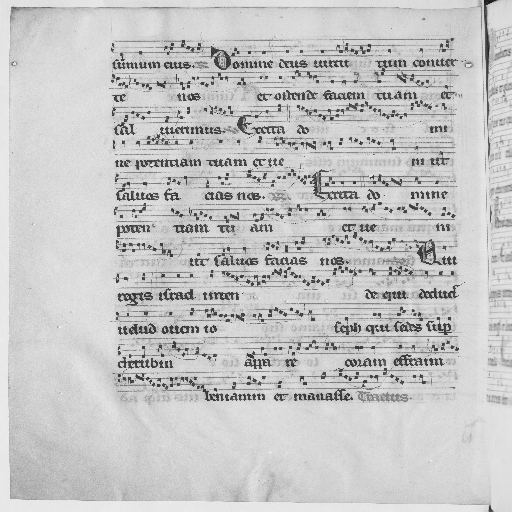 summum eius. Domine deus uirtu tum conuer
te nos et ostende faciem tuam et
sal ui erimus. Excita do mi
ne potentiam tuam et ue ni ut
saluos fa cias nos. Excita do mine
poten tiam tu am et ue ni
ut saluos facias nos. Qui
regis israel inten de qui deducis
uelud ouem io seph qui sedes sup
cherubin appa re coram effraim
beniamin et manasse. Tractus.